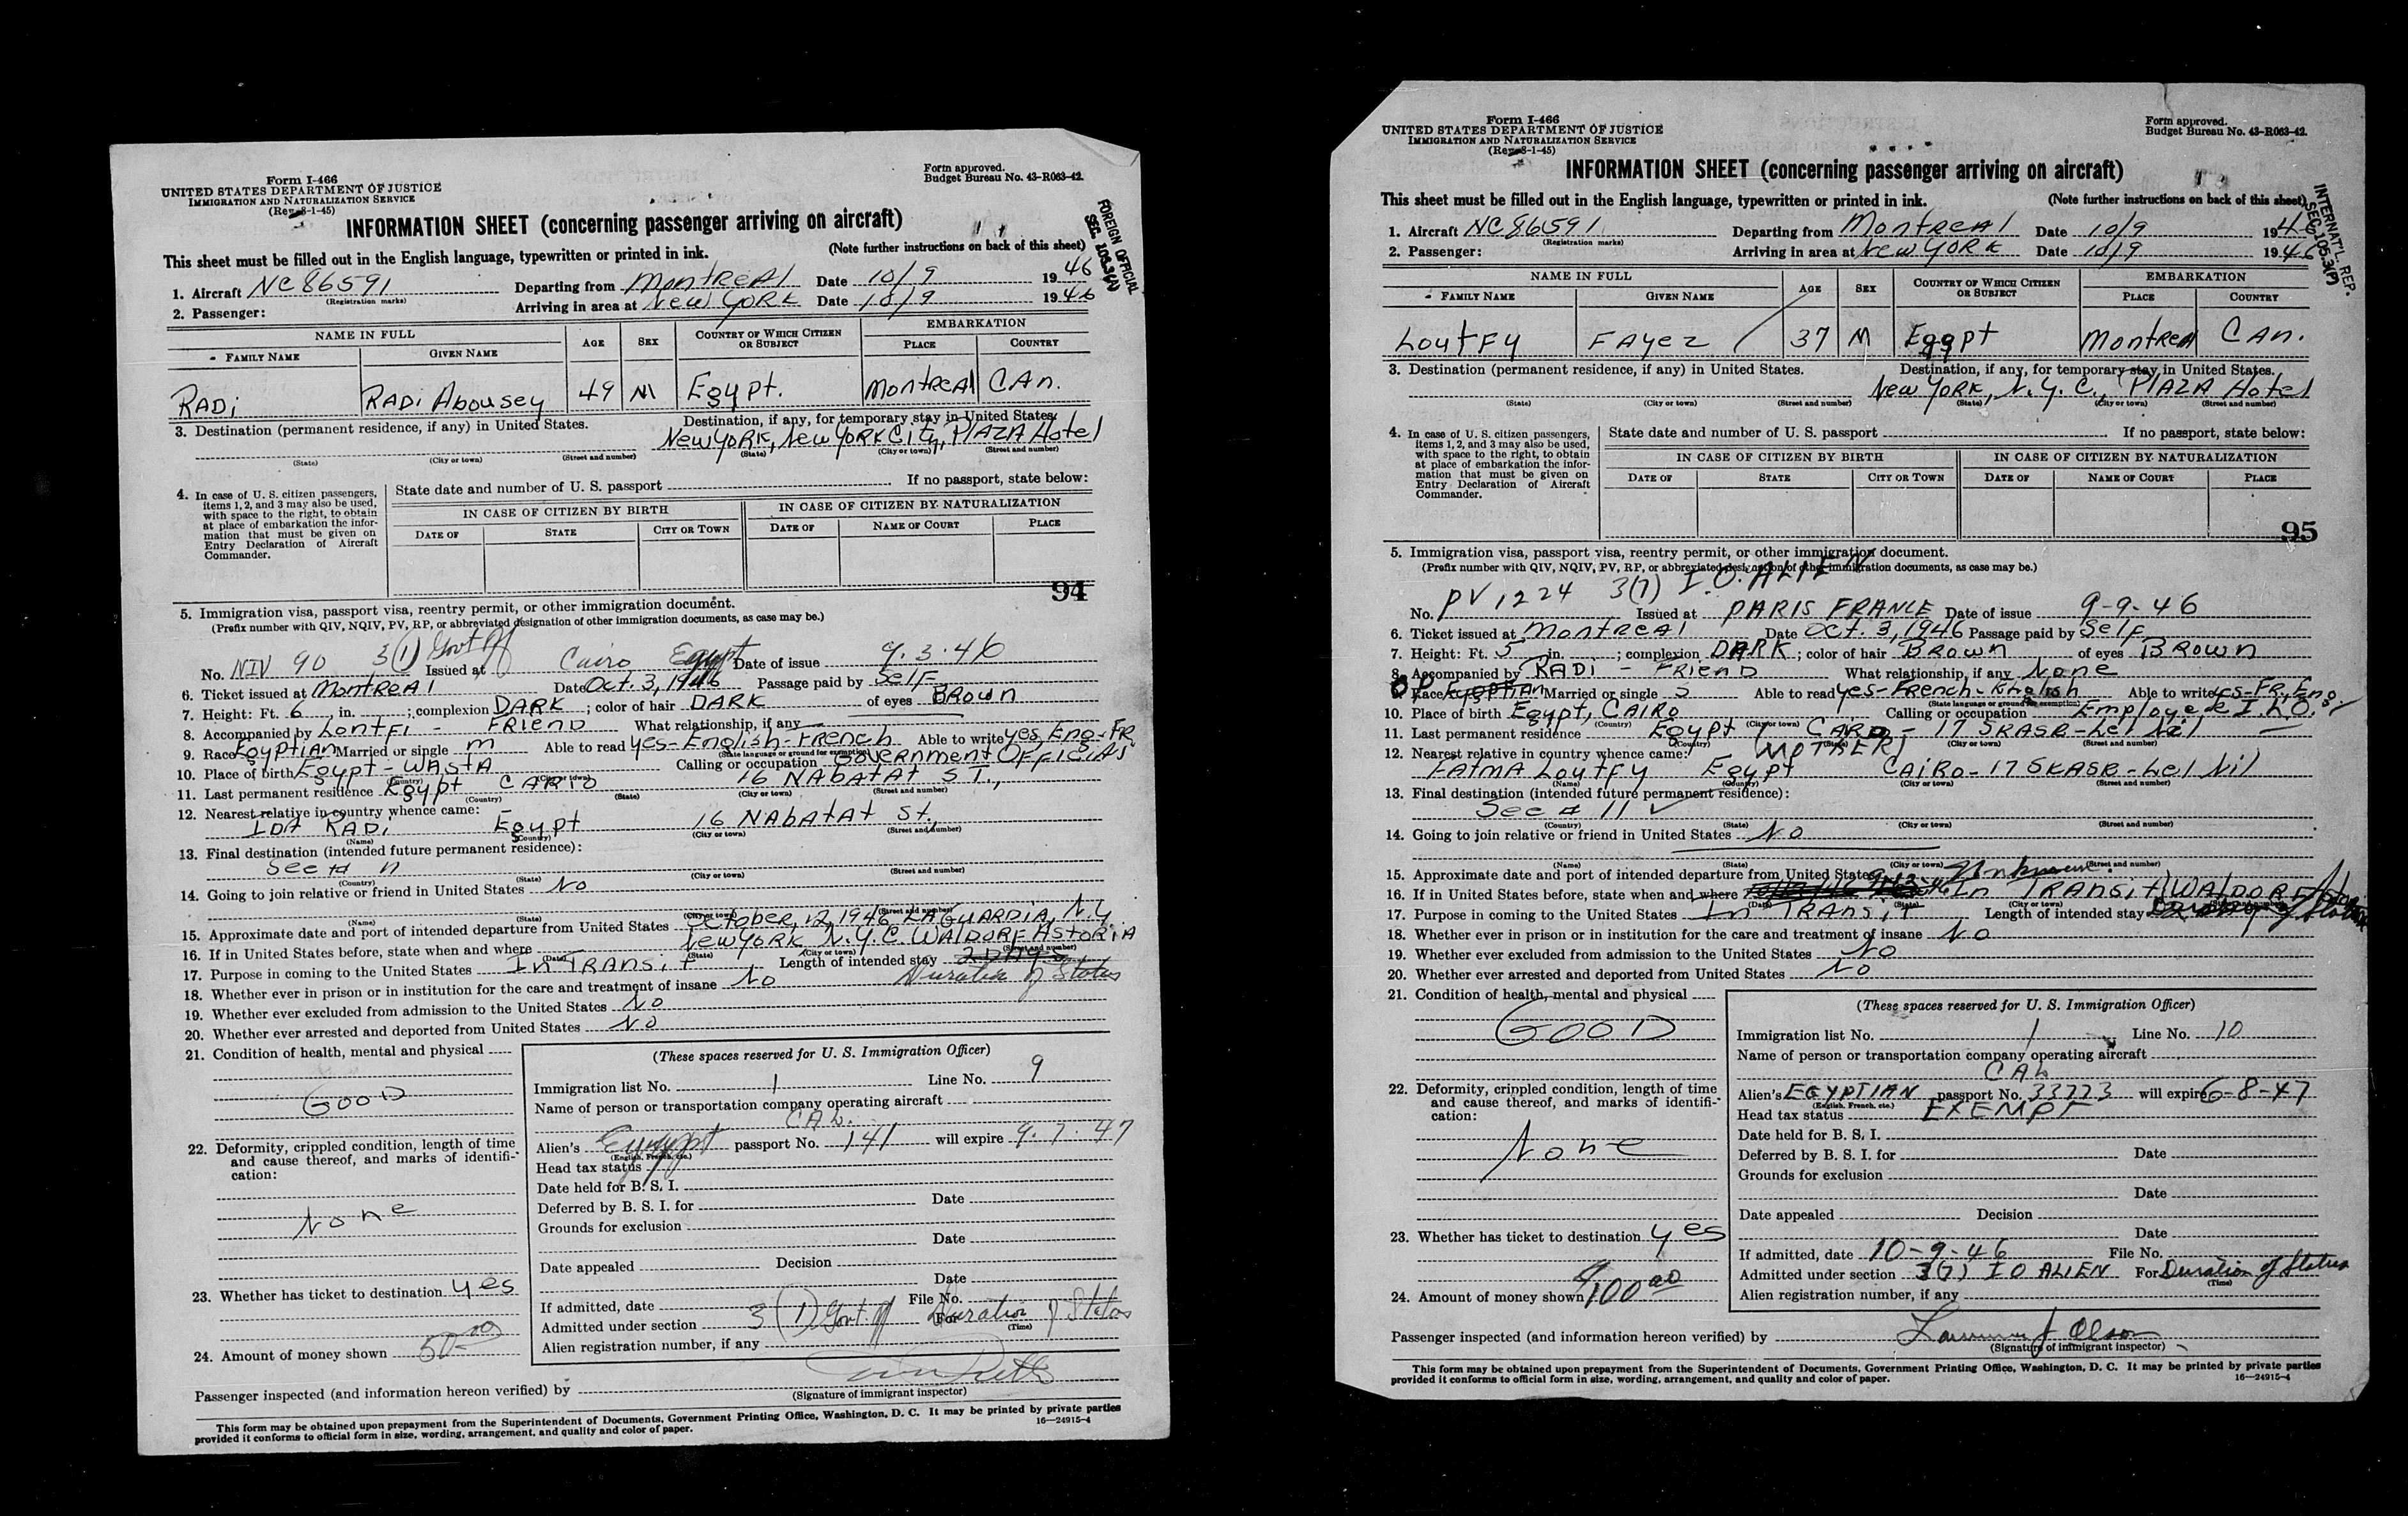 Form I-466
UNITED STATES DEPARTMENT OF JUSTICE
IMMIGRATION AND NATURALIZATION SERVICE
(Rev. 8-1-45)
Form approved.
Budget Bureau No. 43-R063-42.
INFORMATION SHEET (concerning passenger arriving on aircraft)
This sheet must be filled out in the English language, typewritten or printed in ink. (Note further instructions on back of this sheet)
FOREIGN OFFICIAL
SEC. 105.3(A)
1. Aircraft NC86591 Departing from Montreal Date 10/9 1946
(Registration marks)
2. Passenger: Arriving in area at New York Date 10/9 1946
NAME IN FULL AGE SEX COUNTRY OF WHICH CITIZEN OR SUBJECT EMBARKATION
FAMILY NAME GIVEN NAME PLACE COUNTRY
RADi RADi Abousey 49 M Egypt. Montreal CAn.
3. Destination (permanent residence, if any) in United States. Destination, if any, for temporary stay in United States.
New York, New York City, PLAZA Hotel
(State) (City or town) (Street and number) (State) (City or town) (Street and number)
4. In case of U. S. citizen passengers, items 1, 2, and 3 may also be used, with space to the right, to obtain at place of embarkation the information that must be given on Entry Declaration of Aircraft Commander.
State date and number of U. S. passport If no passport, state below:
IN CASE OF CITIZEN BY BIRTH IN CASE OF CITIZEN BY NATURALIZATION
DATE OF STATE CITY OR TOWN DATE OF NAME OF COURT PLACE
94
5. Immigration visa, passport visa, reentry permit, or other immigration document.
(Prefix number with QIV, NQIV, PV, RP, or abbreviated designation of other immigration documents, as case may be.)
No. NIV 90 3(1) Govt Off Issued at Cairo Egypt Date of issue 9.3.46
6. Ticket issued at Montreal Date Oct. 3, 1946 Passage paid by Self
7. Height: Ft. 6 in. ; complexion DARK ; color of hair DARK of eyes BROWN
8. Accompanied by Lontfi - FRIEND What relationship, if any —
9. Race Egyptian Married or single m Able to read yes-English-French Able to write yes Eng-FR
(State language or ground for exemption)
10. Place of birth Egypt - WASTA Calling or occupation Government OFFICIALS
(Country) (City or town)
11. Last permanent residence Egypt CAIRO 16 NAbATAt ST.,
(Country) (State) (City or town) (Street and number)
12. Nearest relative in country whence came: -
IDA RADi Egypt 16 NAbATAt St.,
(Name) (Country) (City or town) (Street and number)
13. Final destination (intended future permanent residence):
See # 11
(Country) (State) (City or town) (Street and number)
14. Going to join relative or friend in United States No
(Name) (State) (City or town) (Street and number)
15. Approximate date and port of intended departure from United States October, 12, 1946 LAGUARDIA, N.Y.
16. If in United States before, state when and where New York N.Y.C. WALDORF ASTORIA
(Date) (State) (City or town) (Street and number)
17. Purpose in coming to the United States In TRANSiT Length of intended stay 2 DAYS
Duration of Status
18. Whether ever in prison or in institution for the care and treatment of insane No
19. Whether ever excluded from admission to the United States No
20. Whether ever arrested and deported from United States No
21. Condition of health, mental and physical
GOOD
22. Deformity, crippled condition, length of time and cause thereof, and marks of identification:
None
23. Whether has ticket to destination yes
24. Amount of money shown 50.00
(These spaces reserved for U. S. Immigration Officer)
Immigration list No. 1 Line No. 9
Name of person or transportation company operating aircraft
CAL.
Alien's Egypt passport No. 141 will expire 9.7.47
(English, French, etc.)
Head tax status
Date held for B. S. I.
Deferred by B. S. I. for Date
Grounds for exclusion
Date
Date appealed Decision
Date
If admitted, date File No.
Admitted under section 3(1) Govt. Off For Duration of Status
(Time)
Alien registration number, if any
Passenger inspected (and information hereon verified) by
(Signature of immigrant inspector)
This form may be obtained upon prepayment from the Superintendent of Documents, Government Printing Office, Washington, D. C. It may be printed by private parties
provided it conforms to official form in size, wording, arrangement, and quality and color of paper. 16—24915-4
Form I-466
UNITED STATES DEPARTMENT OF JUSTICE
IMMIGRATION AND NATURALIZATION SERVICE
(Rev. 8-1-45)
Form approved.
Budget Bureau No. 43-R063-42.
INFORMATION SHEET (concerning passenger arriving on aircraft)
This sheet must be filled out in the English language, typewritten or printed in ink. (Note further instructions on back of this sheet)
INTERNAT'L. REP.
SEC. 105.3(P)
1. Aircraft NC86591 Departing from Montreal Date 10/9 1946
(Registration marks)
2. Passenger: Arriving in area at New York Date 10/9 1946
NAME IN FULL AGE SEX COUNTRY OF WHICH CITIZEN OR SUBJECT EMBARKATION
FAMILY NAME GIVEN NAME PLACE COUNTRY
LoutFy FAyez 37 M Egypt Montreal CAn.
3. Destination (permanent residence, if any) in United States. Destination, if any, for temporary stay in United States.
New York, N.Y.C., PLAZA Hotel
(State) (City or town) (Street and number) (State) (City or town) (Street and number)
4. In case of U. S. citizen passengers, items 1, 2, and 3 may also be used, with space to the right, to obtain at place of embarkation the information that must be given on Entry Declaration of Aircraft Commander.
State date and number of U. S. passport If no passport, state below:
IN CASE OF CITIZEN BY BIRTH IN CASE OF CITIZEN BY NATURALIZATION
DATE OF STATE CITY OR TOWN DATE OF NAME OF COURT PLACE
95
5. Immigration visa, passport visa, reentry permit, or other immigration document.
(Prefix number with QIV, NQIV, PV, RP, or abbreviated designation of other immigration documents, as case may be.)
No. PV 1224 3(7) I.O. ALIEN Issued at PARIS FRANCE Date of issue 9-9-46
6. Ticket issued at Montreal Date Oct. 3, 1946 Passage paid by Self
7. Height: Ft. 5 in. ; complexion DARK ; color of hair BROWN of eyes BROWN
8. Accompanied by RADi - FRIEND What relationship, if any None
9. Race Egyptian Married or single S Able to read yes-French-English Able to write yes-FR, Eng.
(State language or ground for exemption)
10. Place of birth Egypt, CAIRO Calling or occupation Employee I.L.O.
(Country) (City or town)
11. Last permanent residence Egypt CAIRO - 17 SKASR-Lel Nil
(Country) (State) (City or town) (Street and number)
12. Nearest relative in country whence came: (MOTHER)
FATMA LoutFy Egypt CAIRO - 17 SKASR-Lel Nil
(Name) (Country) (City or town) (Street and number)
13. Final destination (intended future permanent residence):
See # 11
(Country) (State) (City or town) (Street and number)
14. Going to join relative or friend in United States No
(Name) (State) (City or town) (Street and number)
15. Approximate date and port of intended departure from United States Unknown.
16. If in United States before, state when and where In TRANSiT WALDORF Astoria
(Date) (State) (City or town) (Street and number)
17. Purpose in coming to the United States In TRANSiT Length of intended stay Duration of Status
18. Whether ever in prison or in institution for the care and treatment of insane No
19. Whether ever excluded from admission to the United States No
20. Whether ever arrested and deported from United States No
21. Condition of health, mental and physical
GOOD
22. Deformity, crippled condition, length of time and cause thereof, and marks of identification:
None
23. Whether has ticket to destination yes
24. Amount of money shown $100.00
(These spaces reserved for U. S. Immigration Officer)
Immigration list No. 1 Line No. 10
Name of person or transportation company operating aircraft
CAL
Alien's EGYPTIAN passport No. 33773 will expire 6-8-47
(English, French, etc.)
Head tax status EXEMPT
Date held for B. S. I.
Deferred by B. S. I. for Date
Grounds for exclusion
Date
Date appealed Decision
Date
If admitted, date 10-9-46 File No.
Admitted under section 3(7) IO ALIEN For Duration of Status
(Time)
Alien registration number, if any
Passenger inspected (and information hereon verified) by
(Signature of immigrant inspector)
This form may be obtained upon prepayment from the Superintendent of Documents, Government Printing Office, Washington, D. C. It may be printed by private parties
provided it conforms to official form in size, wording, arrangement, and quality and color of paper. 16—24915-4